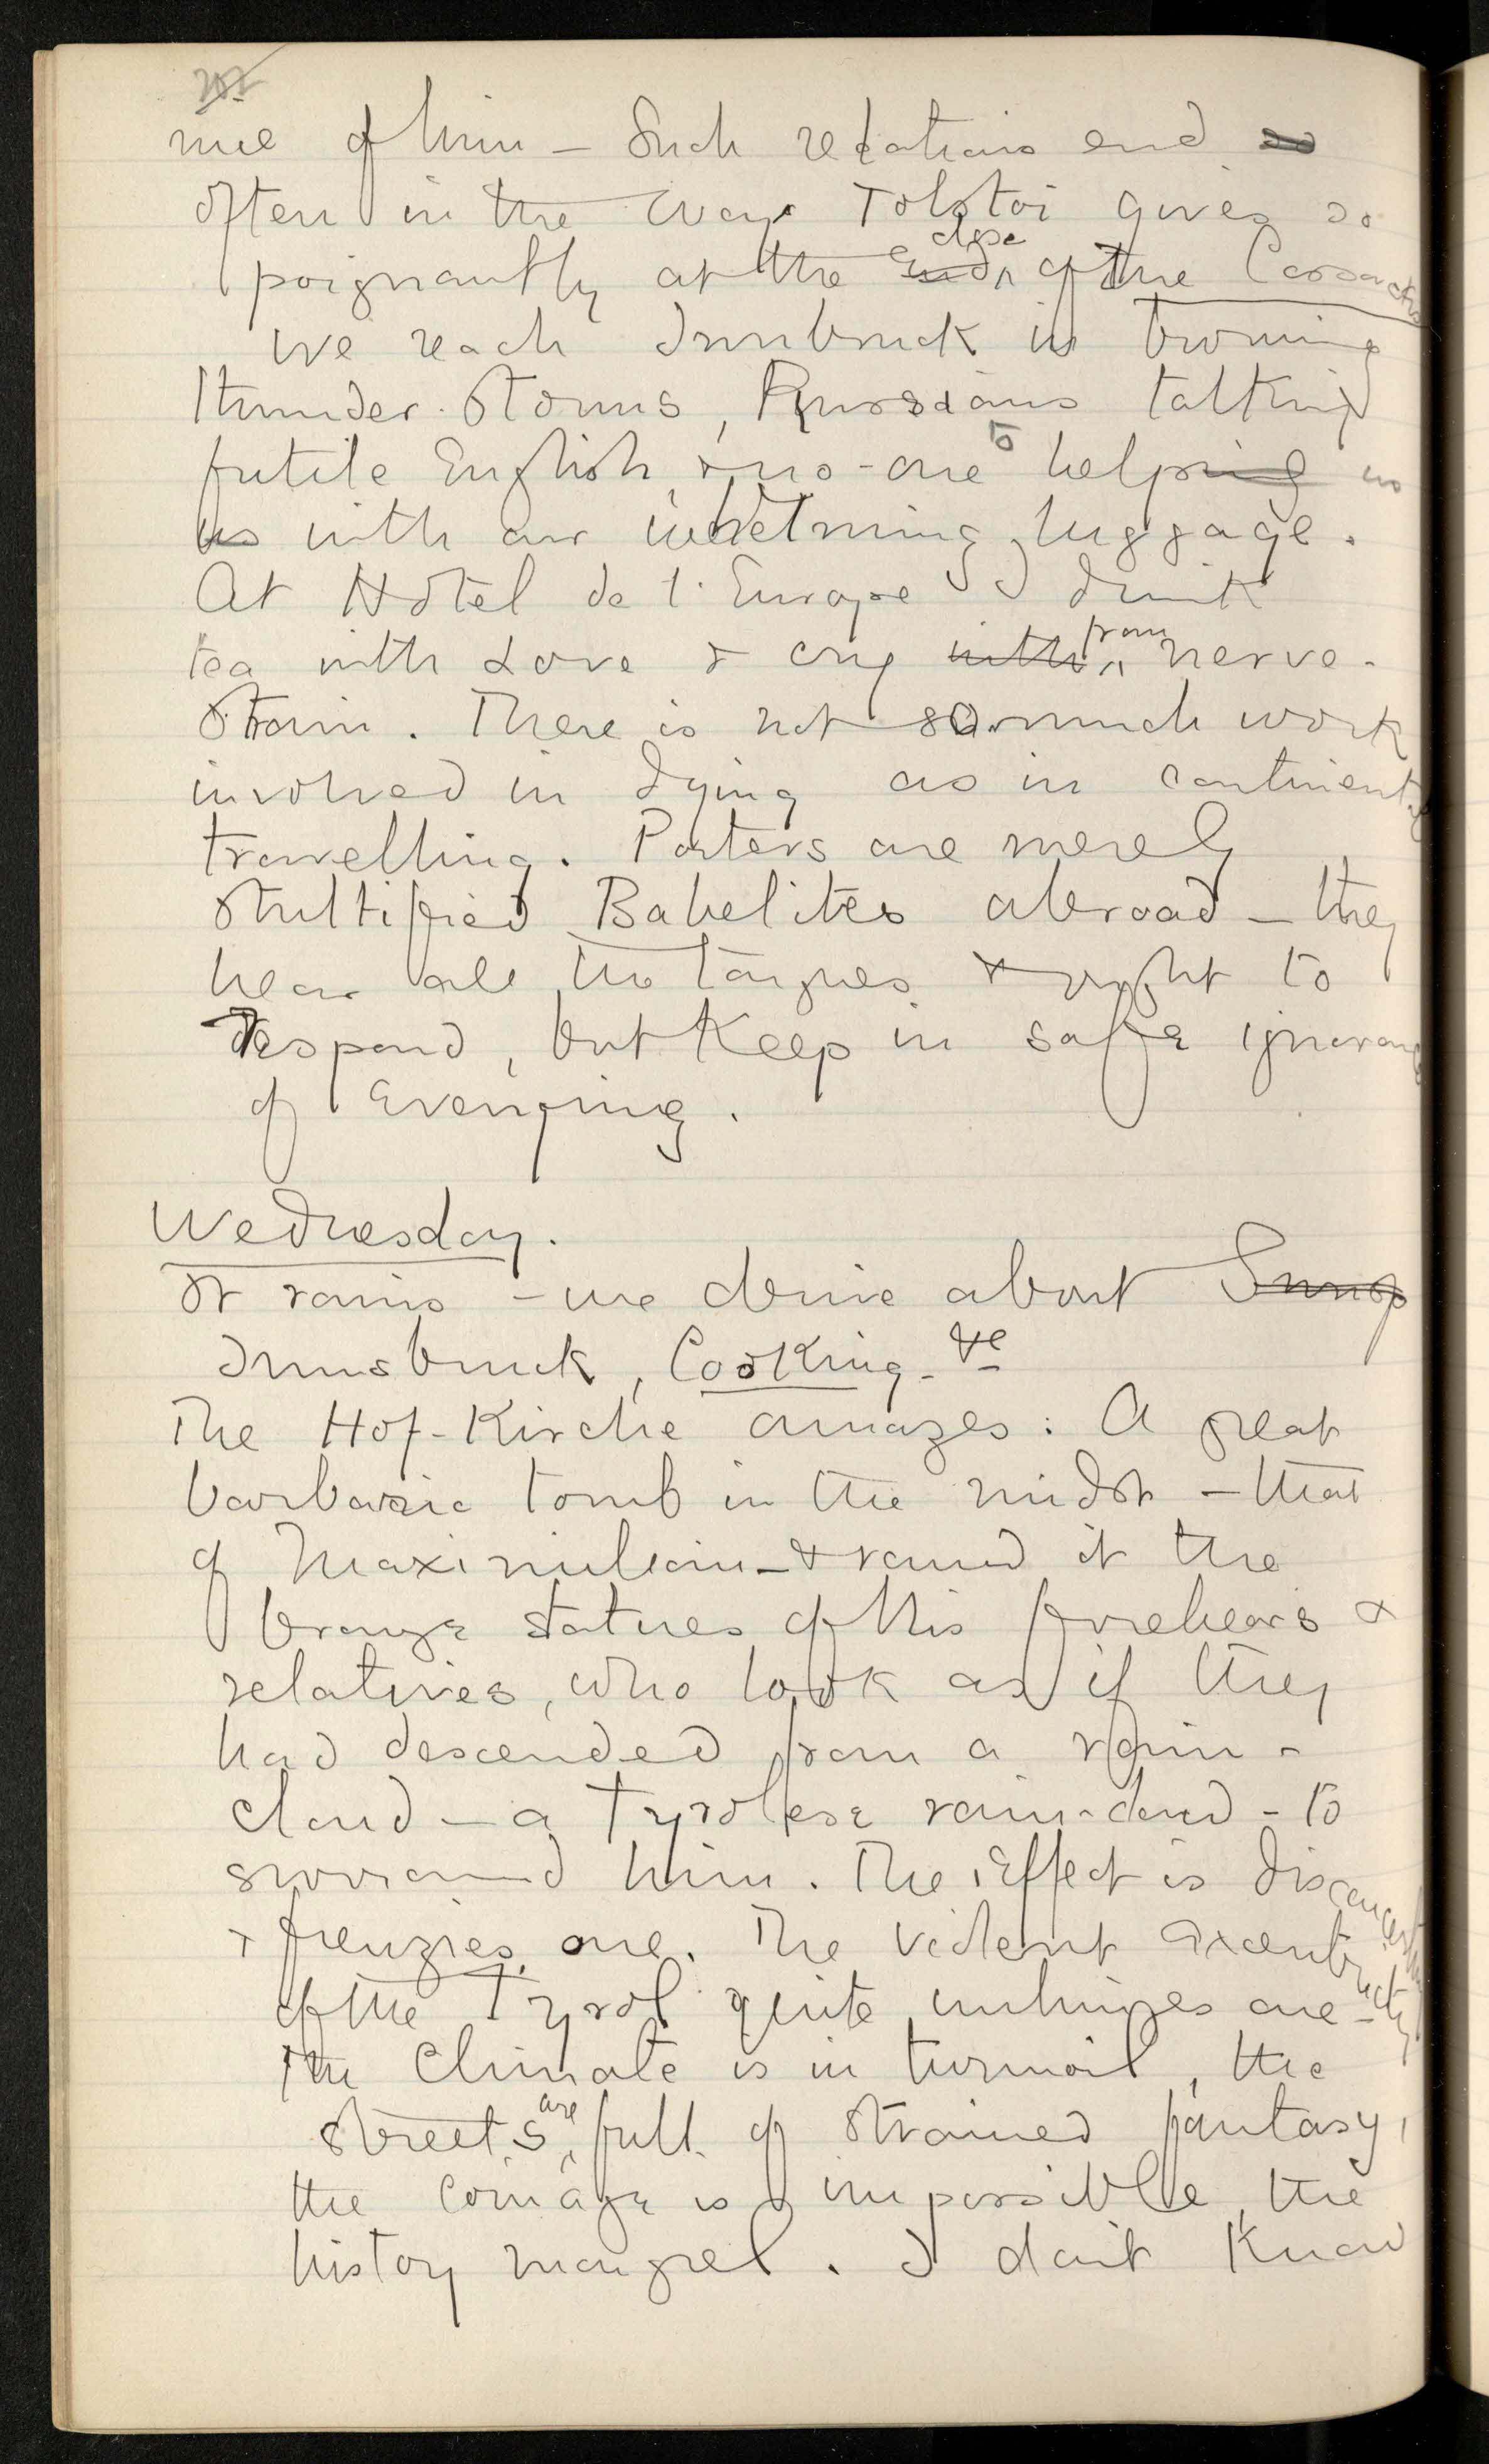 of him – Such relations end so
often in the way Tolstoi gives so
poignantly at the End close of the Cossacks
We reach Innsbruck in browning
thunder-storms, Russians talking
futile English, & no-one to helping us
us with our whelming luggage.
At Hôtel de l'Europe I drink
tea with Love & cry with from nerve-
strain. There is not so much work
involved in dying as in continental
travelling. Porters are merely
stultified Babelites abroad – they
hear all the tongues & ought to
respond, but keep in safe ignorance
of Everything.
Wednesday.
It rains – we drive about Innsp
Innsbruck, Cooking – &c
The Hof-Kirche amazes: A great
barbaric tomb in the midst – that
of Maximilian – & round it the
bronze statues of his forebears &
relatives, who look as if they
had descended from a rain-
cloud – a Tyrolese rain-cloud – to
surround him. The Effect is disconcerting
& frenzies one. The violent excentricity
of the Tyrol quite unhinges one –
the Climate is in turmoil, the
streets are full of strained fantasy,
the coinage is impossible, the
history mongrel. I don't know